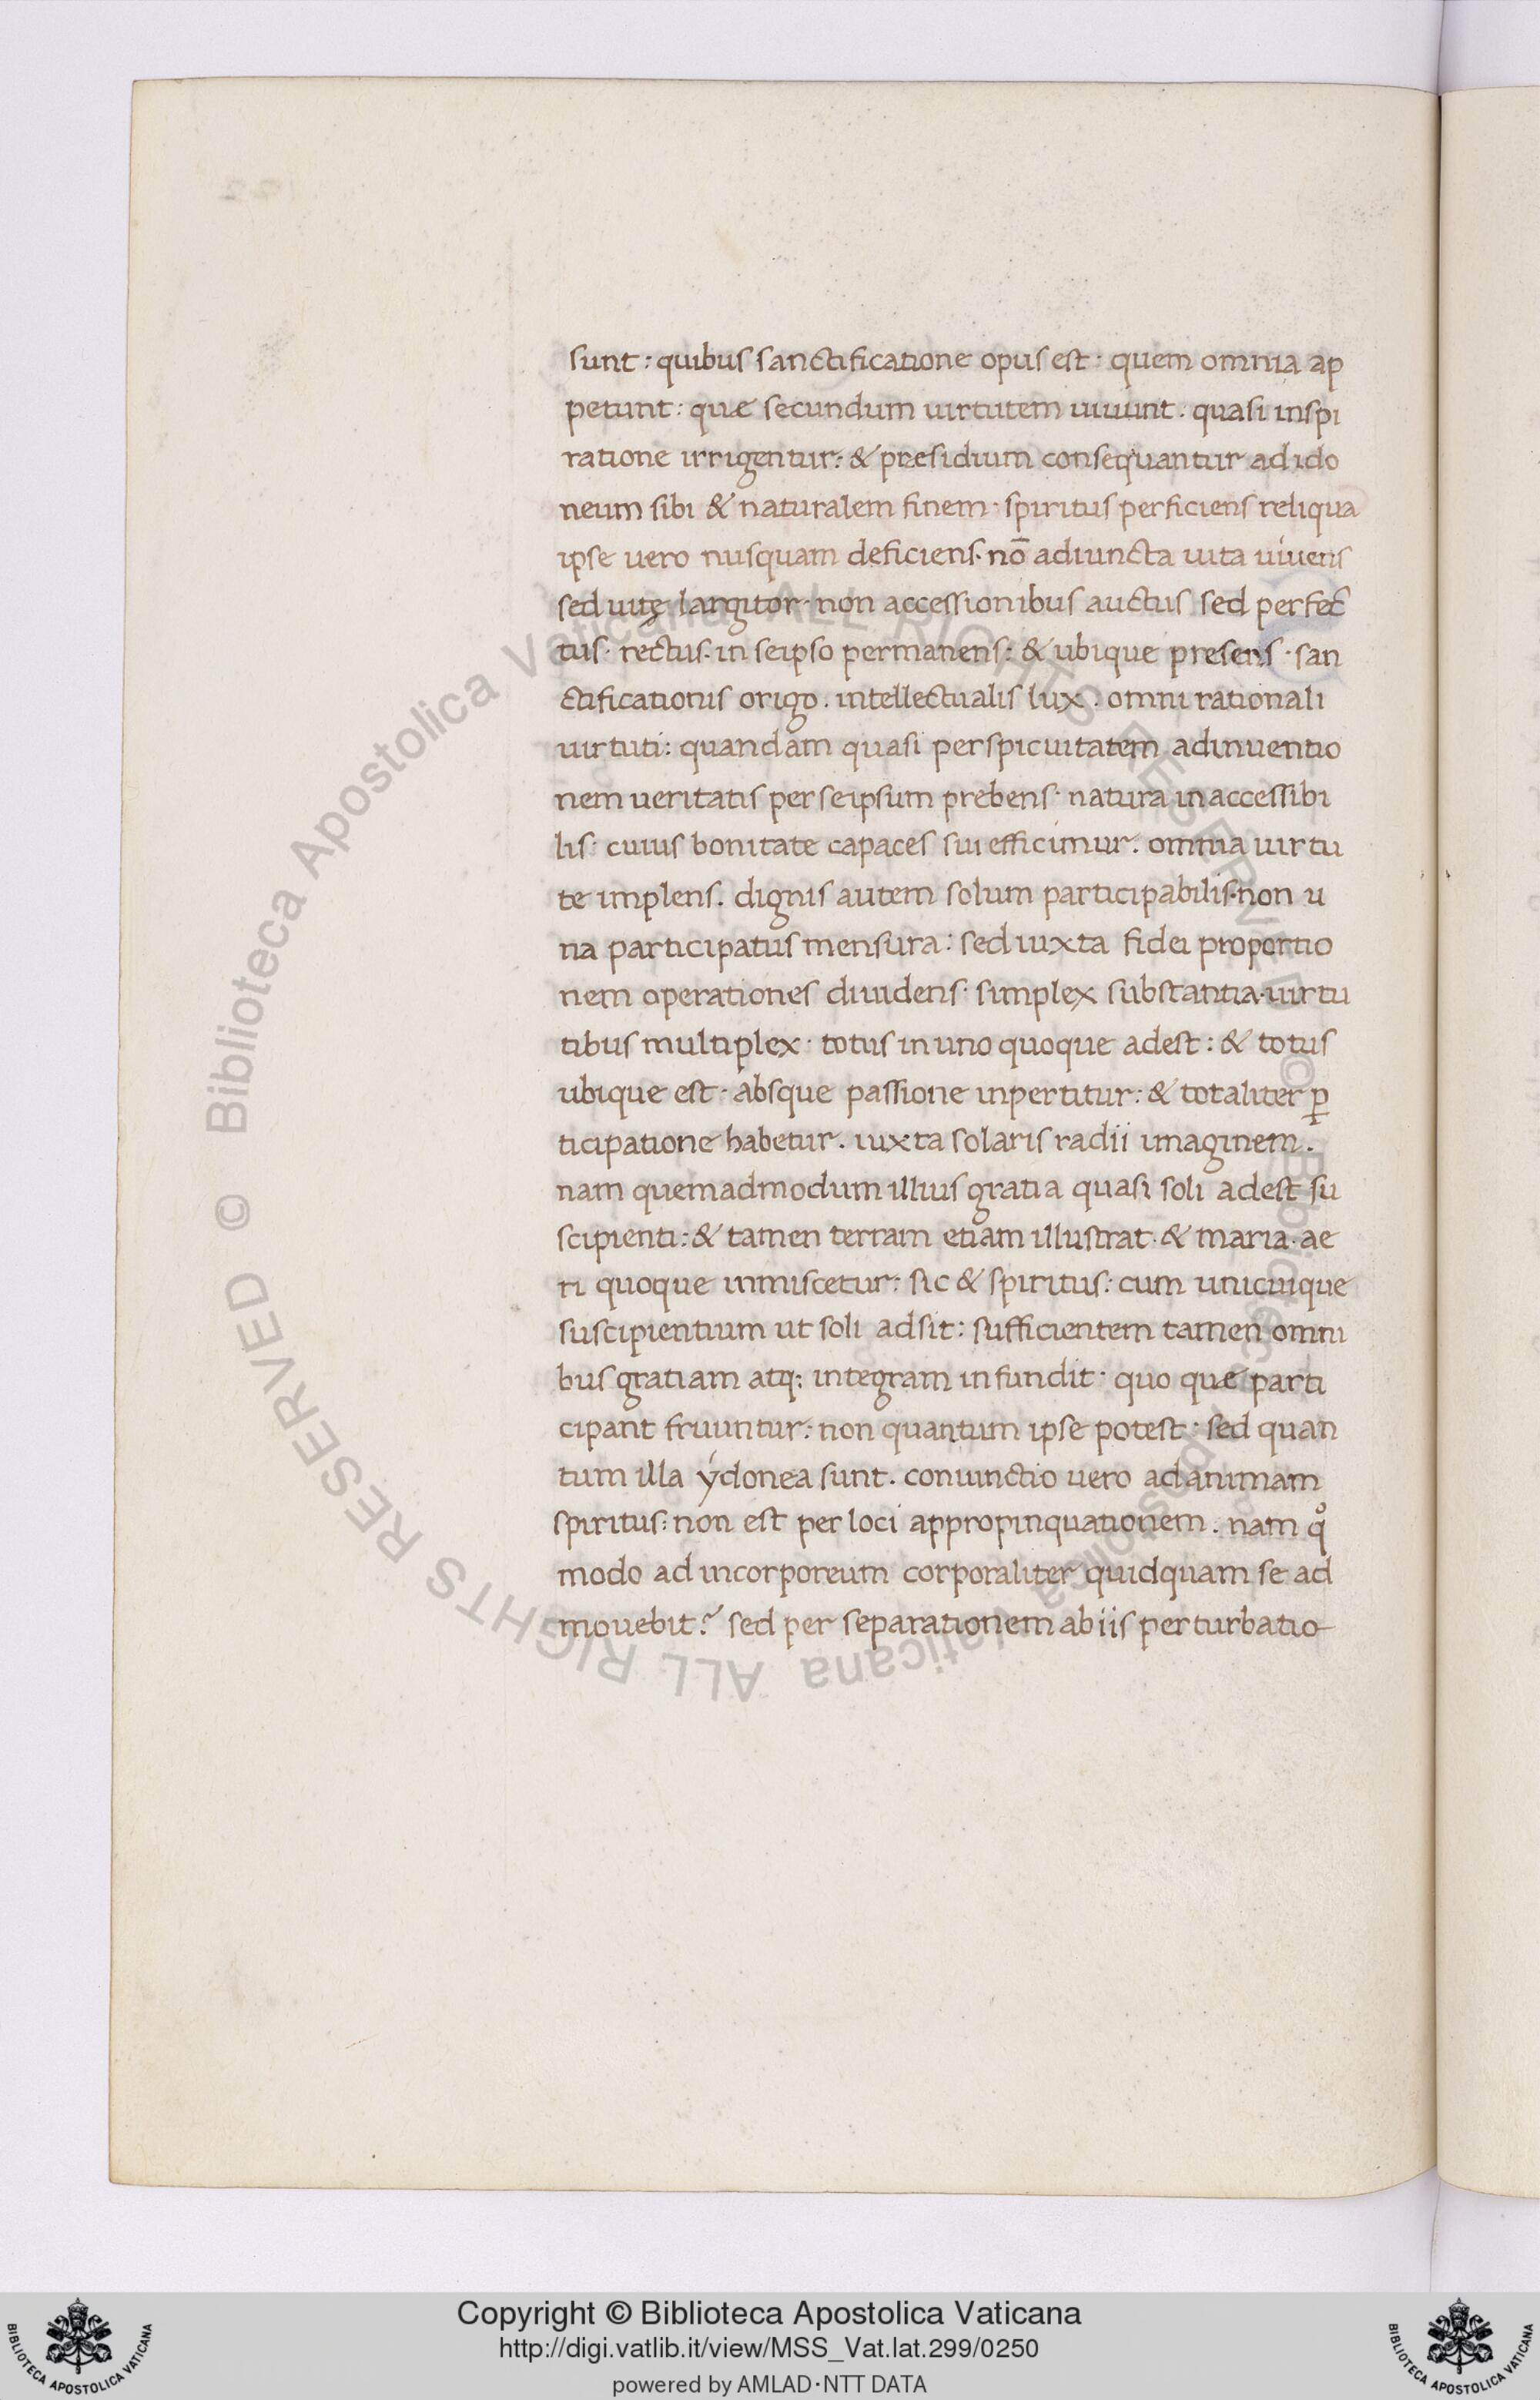 sunt: quibus sanctificatione opus est· quem omnia ap
petunt: quæ secundum uirtutem uiuunt. quasi inspi
ratione irrigentur: & presidium consequantur ad ido
neum sibi & naturalem finem· spiritus perficiens reliqua
ipse uero nusquam deficiens· nō adiuncta uita uiuens
sed uitę largitor· non accessionibus auctus sed perfec
tus· rectus· in seipso permanens: & ubique presens· san
ctificationis origo. intellectualis lux. omni rationali
uirtuti: quandam quasi perspicuitatem adinuentio
nem ueritatis per seipsum prebens· natura inaccessibi
lis: cuius bonitate capaces sui efficimur. omnia uirtu
te implens. dignis autem solum participabilis· non u
na participatus mensura: sed iuxta fidei proportio
nem operationes diuidens· simplex substantia· uirtu
tibus multiplex· totus in uno quoque adest: & totus
ubique est· absque passione inpertitur: & totaliter ꝑ
ticipatione habetur. iuxta solaris radii imaginem.
nam quemadmodum illius gratia quasi soli adest su
scipienti: & tamen terram etiam illustrat· & maria· ae
ri quoque inmiscetur: sic & spiritus: cum unicuique
suscipientium ut soli adsit: sufficientem tamen omni
bus gratiam atq; integram infundit· quo quæ parti
cipant fruuntur: non quantum ipse potest· sed quan
tum illa ýdonea sunt. coniunctio uero ad animam
spiritus: non est per loci appropinquationem. nam qͦ
modo ad incorporeum corporaliter quidquam se ad
mouebit? sed per separationem ab iis perturbatio
© Biblioteca Apostolica Vaticana ALL RIGHTS RESERVED
© Biblioteca Apostolica Vaticana ALL RIGHTS RESERVED
Copyright © Biblioteca Apostolica Vaticana
http://digi.vatlib.it/view/MSS_Vat.lat.299/0250
powered by AMLAD·NTT DATA
BIBLIOTECA APOSTOLICA VATICANA
BIBLIOTECA APOSTOLICA VATICANA